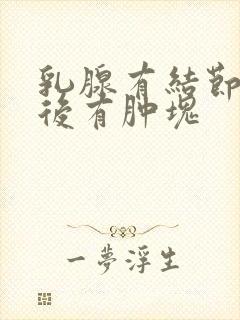 乳腺有結節
後有肿塊
一夢浮生